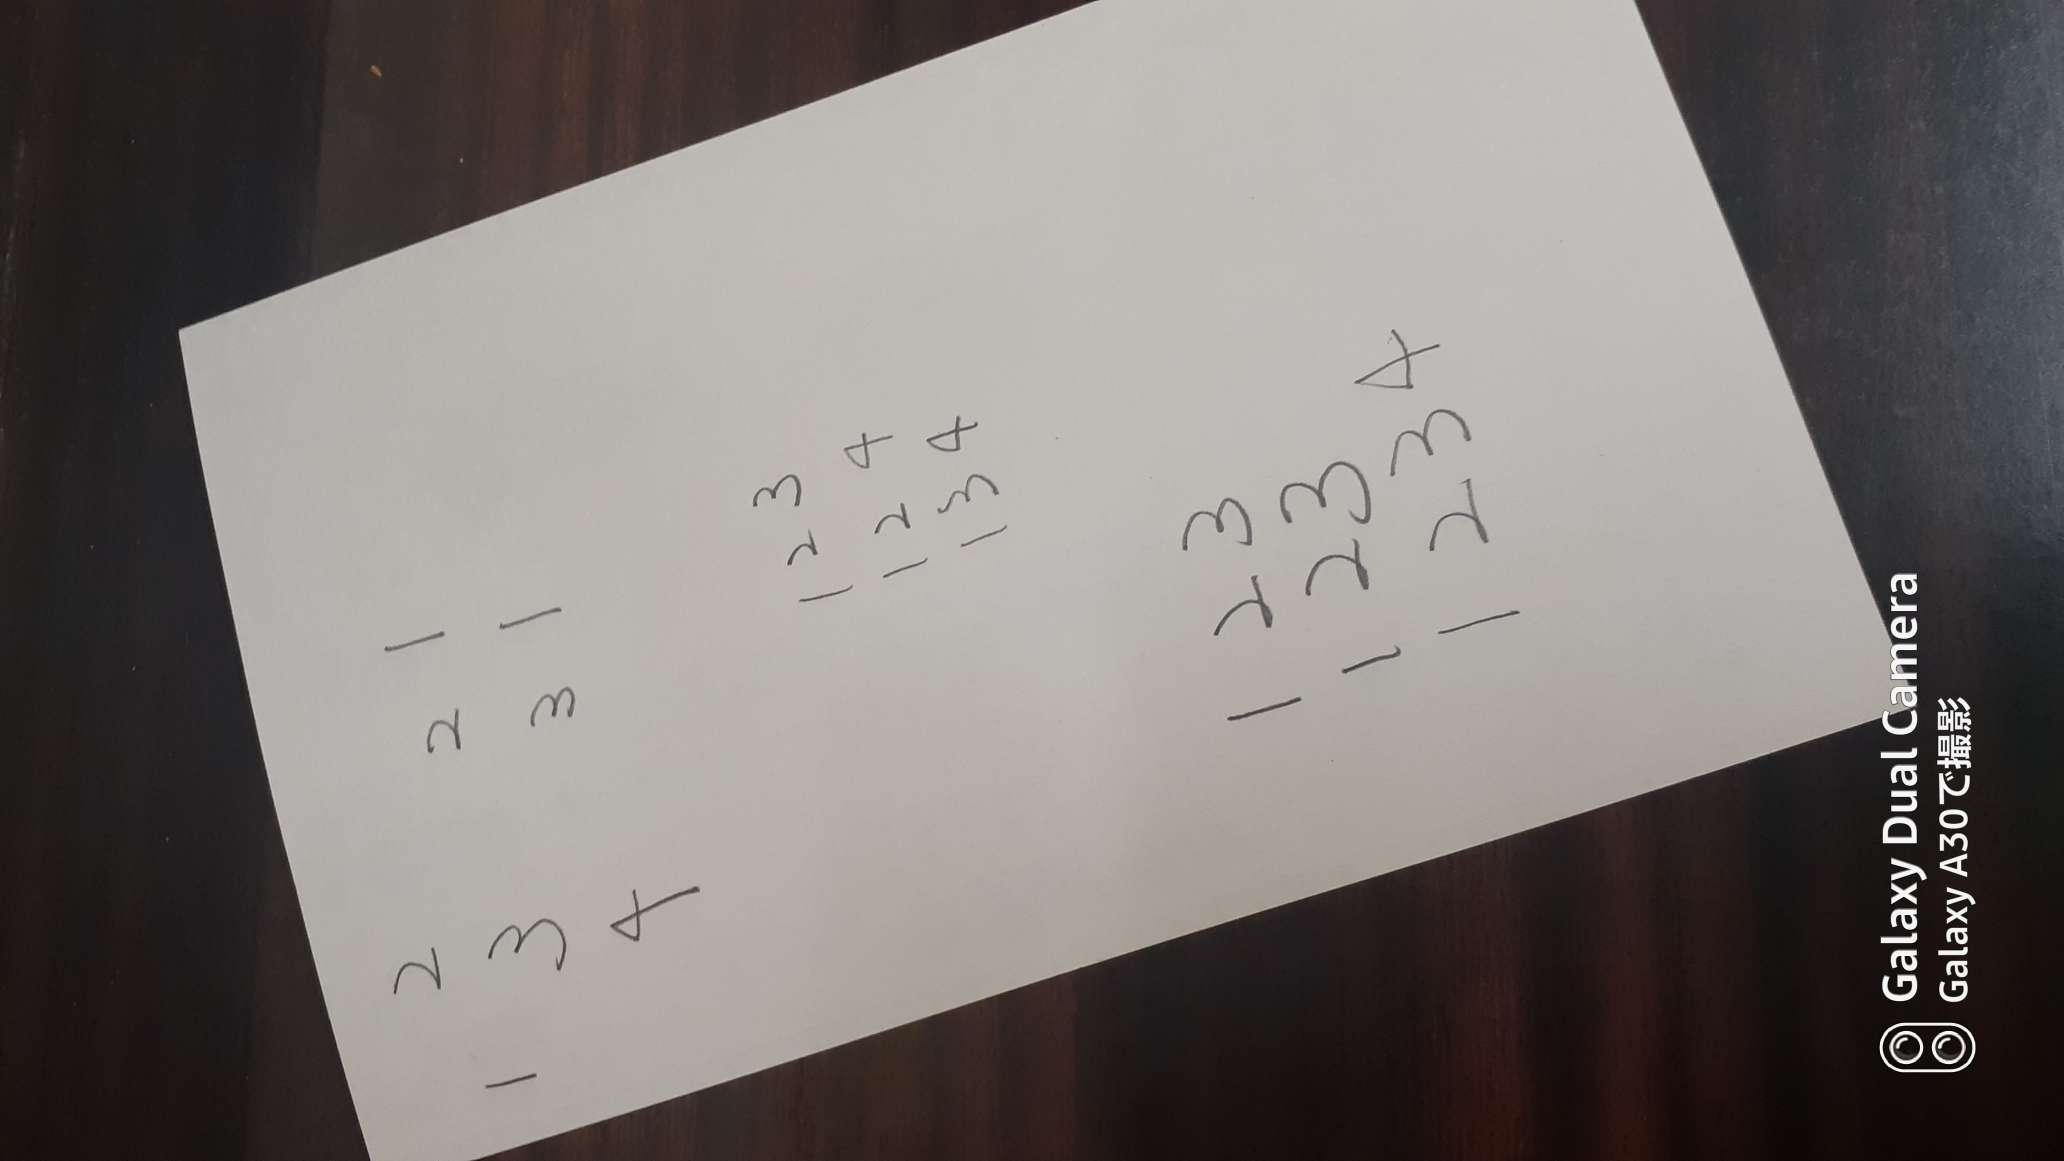 1 2
3 2 1
4 3 1
1 2 3
1 2 4
1 3 4
1 2 3
1 2 3
1 2 3 4
Galaxy Dual Camera
Galaxy A30で撮影